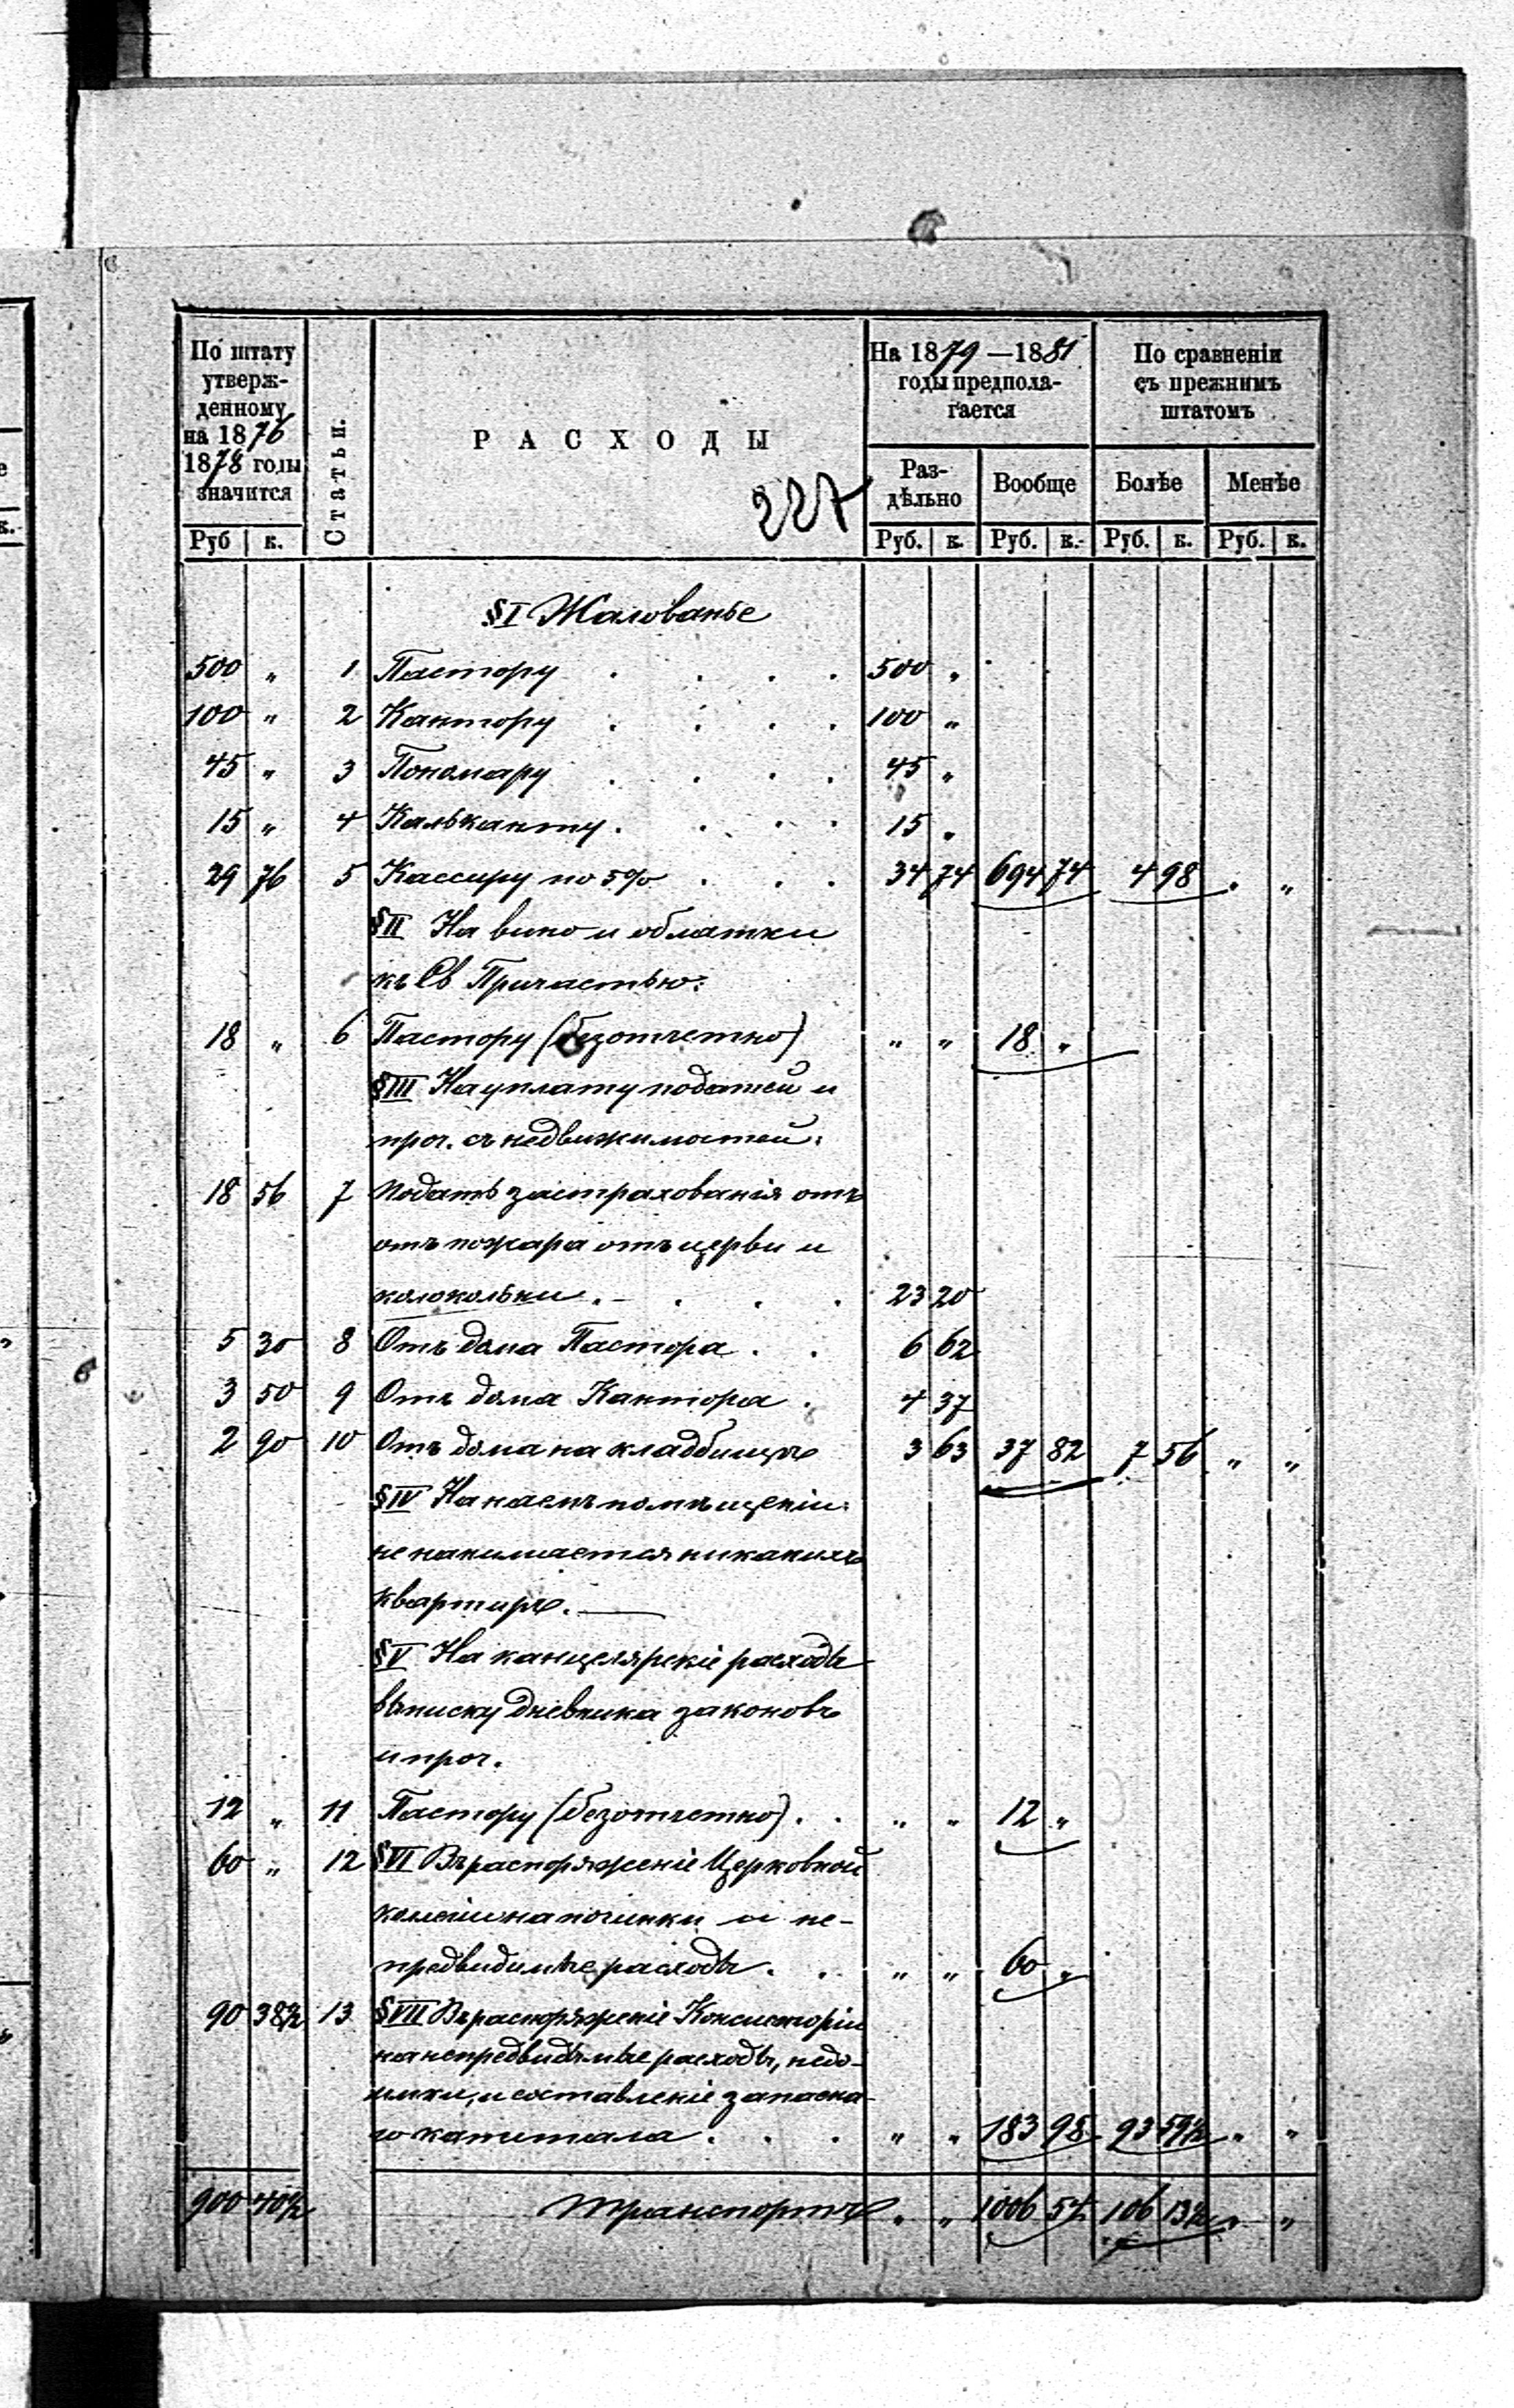 По штату утверж- денному на 1876 1878 годы значится
Статьи.
РАСХОДЫ
227
На 1879 — 1881 годы предпола- гается
По сравненіи съ прежнимъ штатомъ
Раз- дѣльно
Вообще
Болѣе
Менѣе
Руб к.
Руб. к. Руб. к. Руб. к. Руб. к.
§I Жалованье
500 „ 1 Пастору . . . . 500 „
100 „ 2 Кантору . . . . 100 „
45 „ 3 Пономару . . . . 45 „
15 „ 4 Кальканту . . . . 15 „
29 76 5 Кассиру по 5% . . . 34 74 694 74 4 98 „ „
§II На вино и облатки
къ Св Причастью:
18 „ 6 Пастору (безотчетно) „ „ 18 „
§III На уплату податей и
проч. съ недвижимостей:
18 56 7 Подать застрахованія отъ
отъ пожара отъ церви и
колокольни . . . . 23 20
5 30 8 Отъ дома Пастора . . 6 62
3 50 9 Отъ дома Кантора . 4 37
2 90 10 Отъ дома на кладбищѣ 3 63 37 82 7 56 „ „
§IV На наемъ помѣщеніи:
не нанимается никакихъ
квартиръ. —
§V На канцелярскіе расходы
выписку дневника законовъ
и проч.
12 „ 11 Пастору (безотчетно) . . „ „ 12 „
60 „ 12 §VI Въ распоряженіе Церковной
колегіи на починки и не-
предвидимые расходы . . „ „ 60 „
90 38½ 13 §VII Въ распоряженіе Консисторіи
на непредвидѣмые расходы, недо-
имки, и составленіе запасна-
го капитала . . . „ „ 183 98 93 59½ „ „
900 40½ Транспортъ „ „ 1006 54 106 13½ „ „